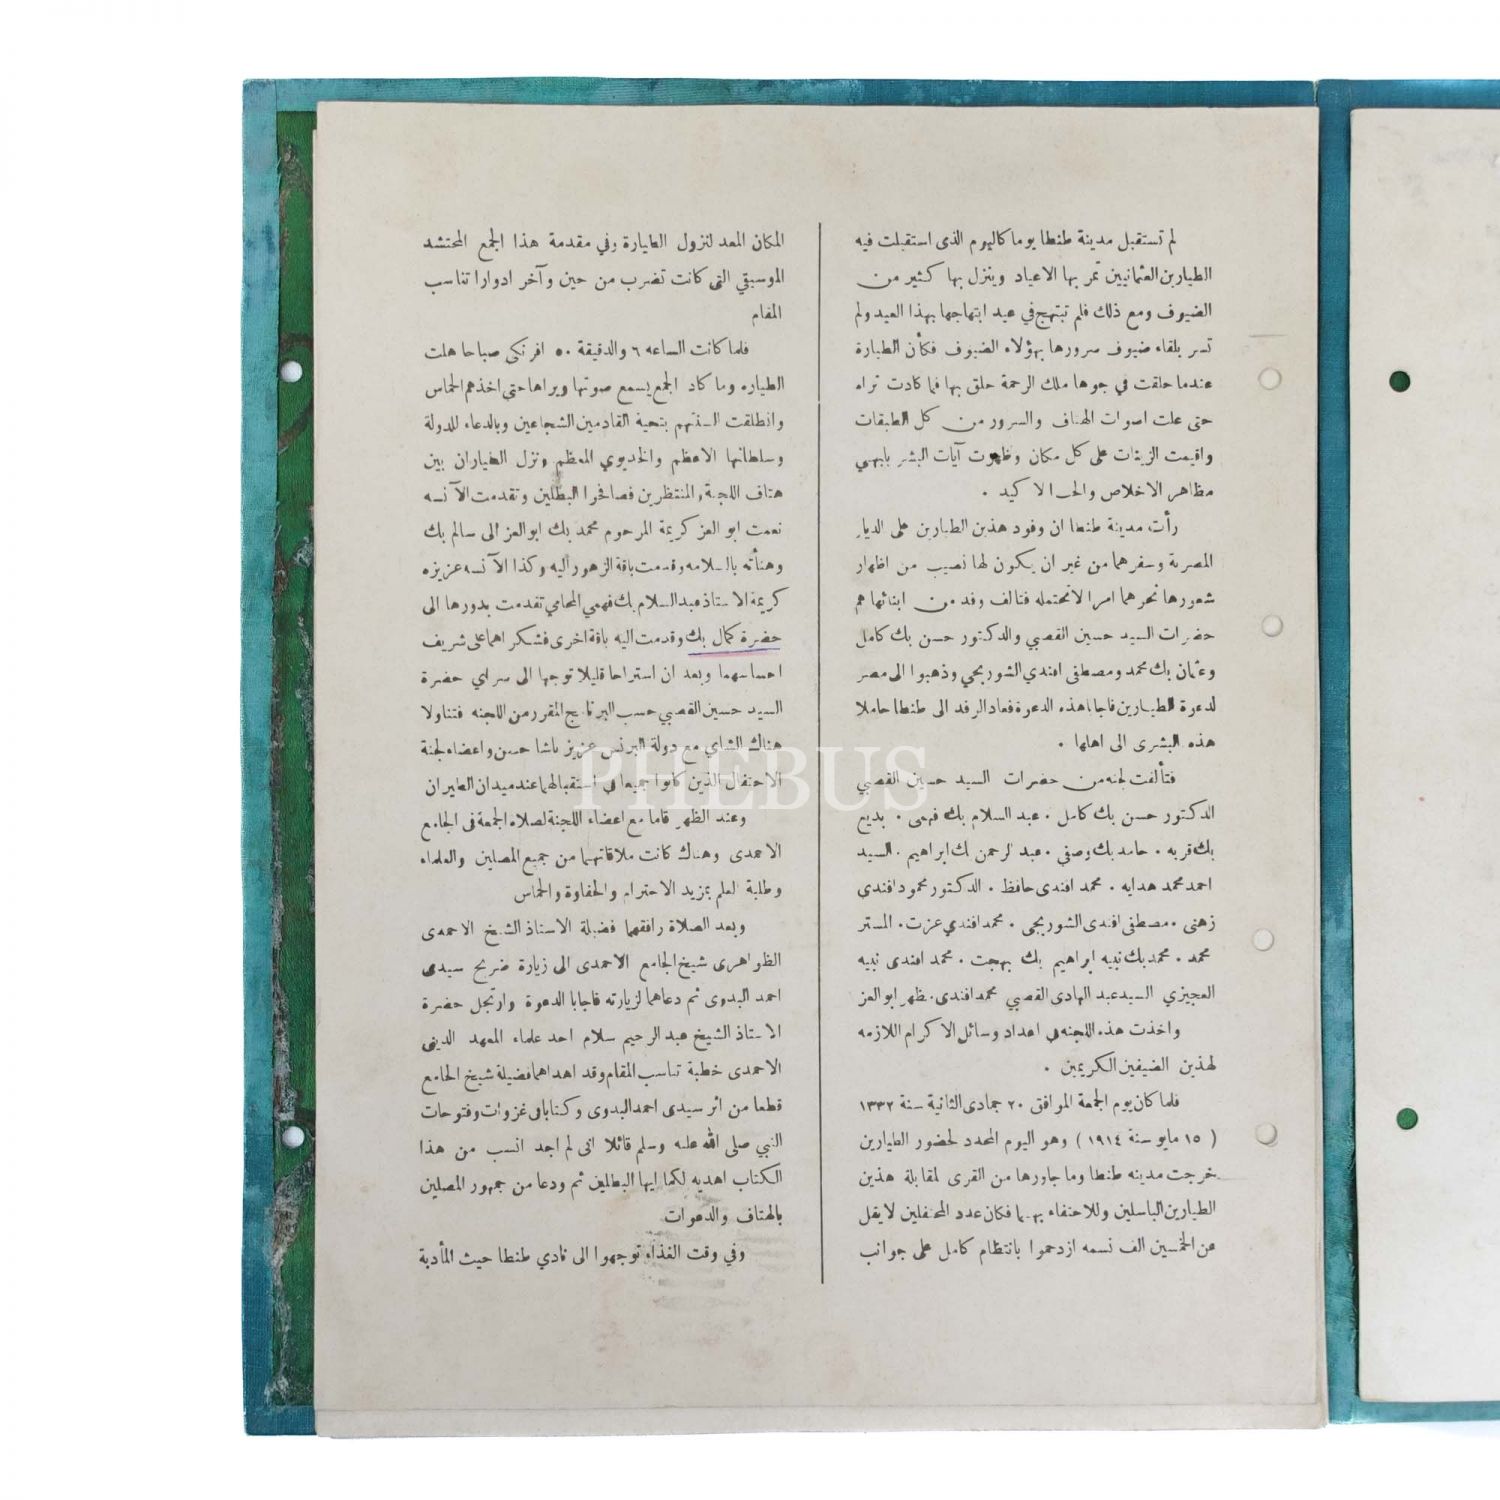 لم تستقبل مدينة طنطا يوما كاليوم الذى استقبلت فيه
الطيارين العثمانيين تمر بها الاعياد وينزل بها كثير من
الضيوف ومع ذلك فلم تبتهج في عيد ابتهاجها بهذا العيد ولم
تسر بلقاء ضيوف سرورها بهؤلاء الضيوف فكأن الطيارة
عندما حلقت في جوها ملك الرحمة حلق بها فما كادت تراه
حتى علت اصوات الهتاف والسرور من كل الطبقات
واقيمت الزينات على كل مكان وظهرت آيات البشر بابهى
مظاهر الاخلاص والحب الاكيد .
رأت مدينة طنطا ان وفود هذين الطيارين على الديار
المصرية وسفرهما من غير ان يكون لها نصيب من اظهار
شعورها نحوهما امرا لا تحتمله فتالف وفد من ابنائها هم
حضرات السيد حسين القصبي والدكتور حسن بك كامل
وعثمان بك محمد ومصطفى افندي الشوربجي وذهبوا الى مصر
لدعوة الطيارين فاجابا هذه الدعوة فعاد الوفد الى طنطا حاملا
هذه البشرى الى اهلها .
فتألفت لجنه من حضرات السيد حسين القصبي
الدكتور حسن بك كامل . عبد السلام بك فهمى . بديع
بك قربه . حامد بك وصفي . عبد الرحمن بك ابراهيم . السيد
احمد محمد هدايه . محمد افندى حافظ . الدكتور محمود افندى
زهنى . مصطفى افندى الشوربجى . محمد افندي عزت . المستر
محمد . محمد بك نبيه ابراهيم بك بهجت . محمد افندى نبيه
العجيزي السيد عبد الهادى القصبي محمد افندى مظهر ابو العز
واخذت هذه اللجنه في اعداد وسائل الاكرام اللازمه
لهذين الضيفين الكريمين .
فلما كان يوم الجمعة الموافق ٢٠ جمادى الثانية سنة ١٣٣٢
( ١٥ مايو سنة ١٩١٤ ) وهو اليوم المحدد لحضور الطيارين
خرجت مدينه طنطا وما جاورها من القرى لمقابلة هذين
الطيارين الباسلين وللاحتفاء بهما فكان عدد المحتفلين لا يقل
عن الخمسين الف نسمه ازدحموا بانتظام كامل على جوانب
المكان المعد لنزول الطيارة وفي مقدمة هذا الجمع المحتشد
الموسيقي التى كانت تضرب من حين وآخر ادوارا تناسب
المقام
فلما كانت الساعه ٦ والدقيقة ٥٠ افرنكى صباحا هلت
الطياره وما كاد الجمع يسمع صوتها ويراها حتى اخذهم الحماس
وانطلقت السنتهم بتحية القادمين الشجاعين وبالدعاء للدولة
وسلطانها الاعظم والخديوي المعظم ونزل الطياران بين
هتاف اللجنة والمنتظرين فصافحوا البطلين وتقدمت الآنسه
نعمت ابو العز كريمة المرحوم محمد بك ابو العز الى سالم بك
وهنأته بالسلامه وقدمت باقة الزهور اليه وكذا الآنسه عزيزه
كريمة الاستاذ عبد السلام بك فهمي المحامي تقدمت بدورها الى
حضرة كمال بك وقدمت اليه باقة اخرى فشكراهما على شريف
احساسهما وبعد ان استراحا قليلا توجها الى سراي حضرة
السيد حسين القصبي حسب البرنامج المقرر من اللجنه فتناولا
هناك الشاي مع دولة البرنس عزيز باشا حسن واعضاء لجنة
الاحتفال الذين كانوا جميعا في استقبالهما عند ميدان الطيران
وعند الظهر قاما مع اعضاء اللجنة لصلاة الجمعة فى الجامع
الاحمدى وهناك كانت ملاقاتهما من جميع المصلين والعلماء
وطلبة العلم بمزيد الاحترام والحفاوة والحماس
وبعد الصلاة رافقهما فضيلة الاستاذ الشيخ الاحمدى
الظواهرى شيخ الجامع الاحمدى الى زيارة ضريح سيدى
احمد البدوى ثم دعاهما لزيارته فاجابا الدعوة وارتجل حضرة
الاستاذ الشيخ عبد الرحيم سلام احد علماء المعهد الدينى
الاحمدى خطبة تناسب المقام وقد اهداهما فضيلة شيخ الجامع
قطعا من اثر سيدى احمد البدوى وكتابا فى غزوات وفتوحات
النبي صلى الله عليه وسلم قائلا انى لم اجد انسب من هذا
الكتاب اهديه لكما ايها البطلين ثم ودعا من جمهور المصلين
بالهتاف والدعوات
وفي وقت الغذاء توجهوا الى نادي طنطا حيث المأدبة
PHEBUS